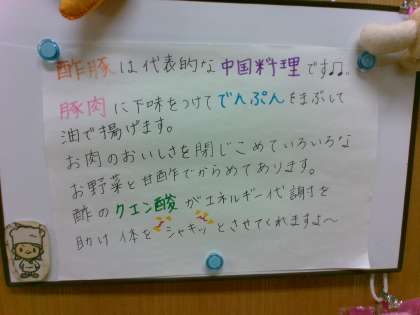 酢豚は代表的な中国料理です♫
豚肉に下味をつけてでんぷんをまぶして
油で揚げます。
お肉のおいしさを閉じこめていろいろな
お野菜と甘酢でからめてあります。
酢のクエン酸がエネルギー代謝を
助け体をシャキッとさせてくれますよ〜